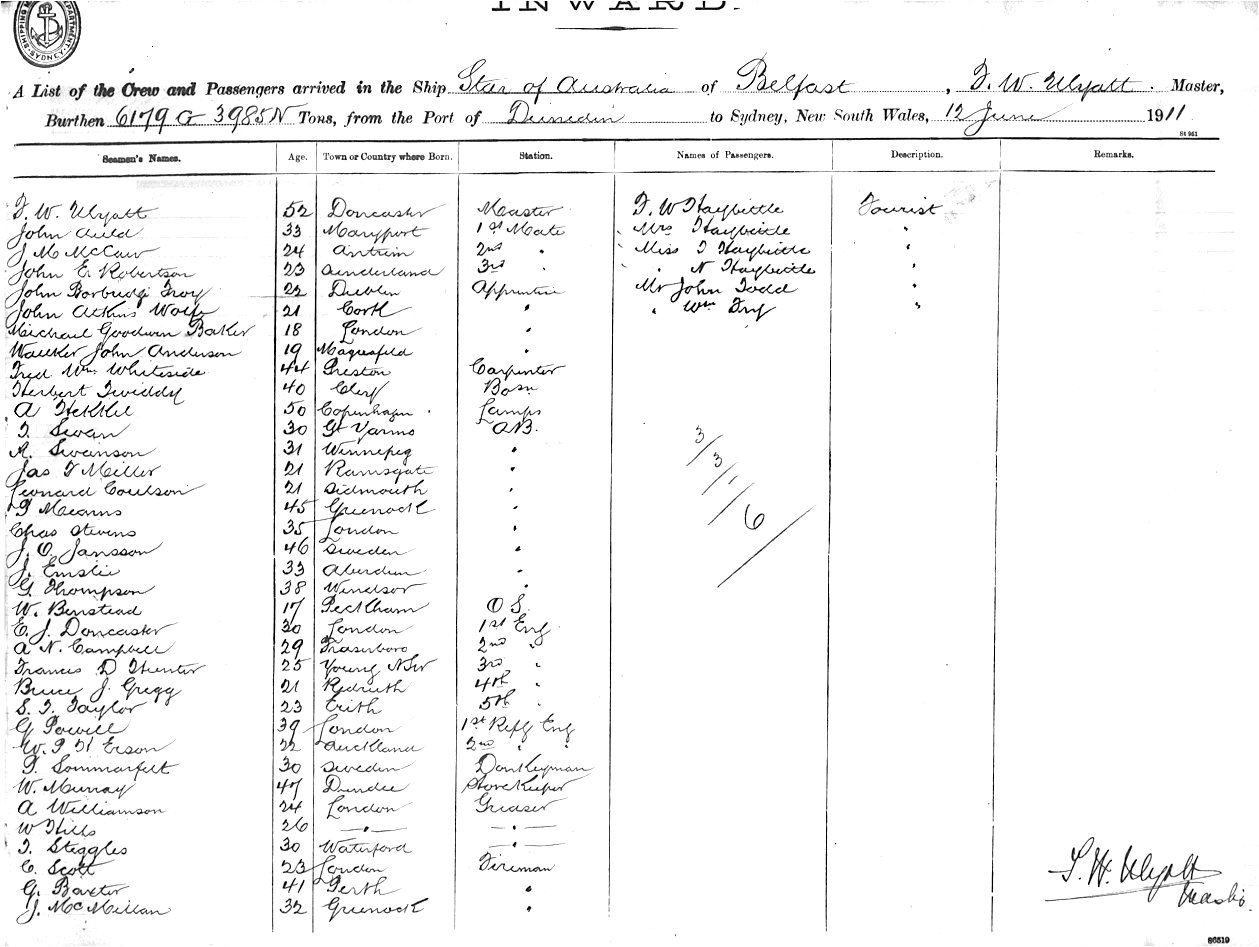 INWARD.
SHIPPING MASTER'S DEPARTMENT SYDNEY
A List of the Crew and Passengers arrived in the Ship Star of Australia of Belfast, F. W. Wyatt. Master,
Burthen 6179 G 3985 N Tons, from the Port of Dunedin to Sydney, New South Wales, 12 June 1911
St 961
Seamen's Names. Age. Town or Country where Born. Station. Names of Passengers. Description. Remarks.
F. W. Wyatt 52 Doncaster Master F. W Haybittle Tourist
John Auld 33 Maryport 1st Mate Mrs Haybittle "
J M McCaw 24 Antrim 2nd " Miss I Haybittle "
John E Robertson 23 Sunderland 3rd " " N Haybittle "
John Troy 22 Dublin Apprentice Mr John Todd "
John Atkins Wolfe 21 Cork " " Wm Fry "
Michael Goodwin Baker 18 London "
Walker John Anderson 19 "
Fred Wm Whiteside 44 Preston Carpenter
Herbert Twiddy 40 Cley Bosn
A 50 Copenhagen. Lamps
T. Swan 30 Gt Yarms A.B.
A. Swanson 31 Winnepeg "
Jas F Miller 21 Ramsgate "
Leonard Coulson 21 Sidmouth "
Mearns 45 Greenock "
Chas Stevens 35 London "
J. O. Jansson 46 Sweden "
J. Emslie 33 Aberdeen "
G. Thompson 38 Windsor "
W. Binstead 17 Peckham O S.
E. J. Doncaster 30 London 1st Eng
A N. Campbell 29 Fraserboro 2nd "
Francis D Hunter 25 Young NSW 3rd "
Bruce J. Gregg 21 Redruth 4th "
S. T. Taylor 23 Erith 5th "
G Powell 39 London 1st Refg Eng
W. P H Erson 22 Auckland 2nd " "
P. Sommarfelt 30 Sweden Donkeyman
W. Murray 47 Dundee Storekeeper
A Williamson 24 London Greaser
W Hills 26 — " — — " —
T. Steggles 30 Waterford — " —
C. Scott 23 London Fireman
G. Baxter 41 Perth "
J. McMillan 32 Greenock "
3/3/1/6/
F. W. Wyatt
Master
86519